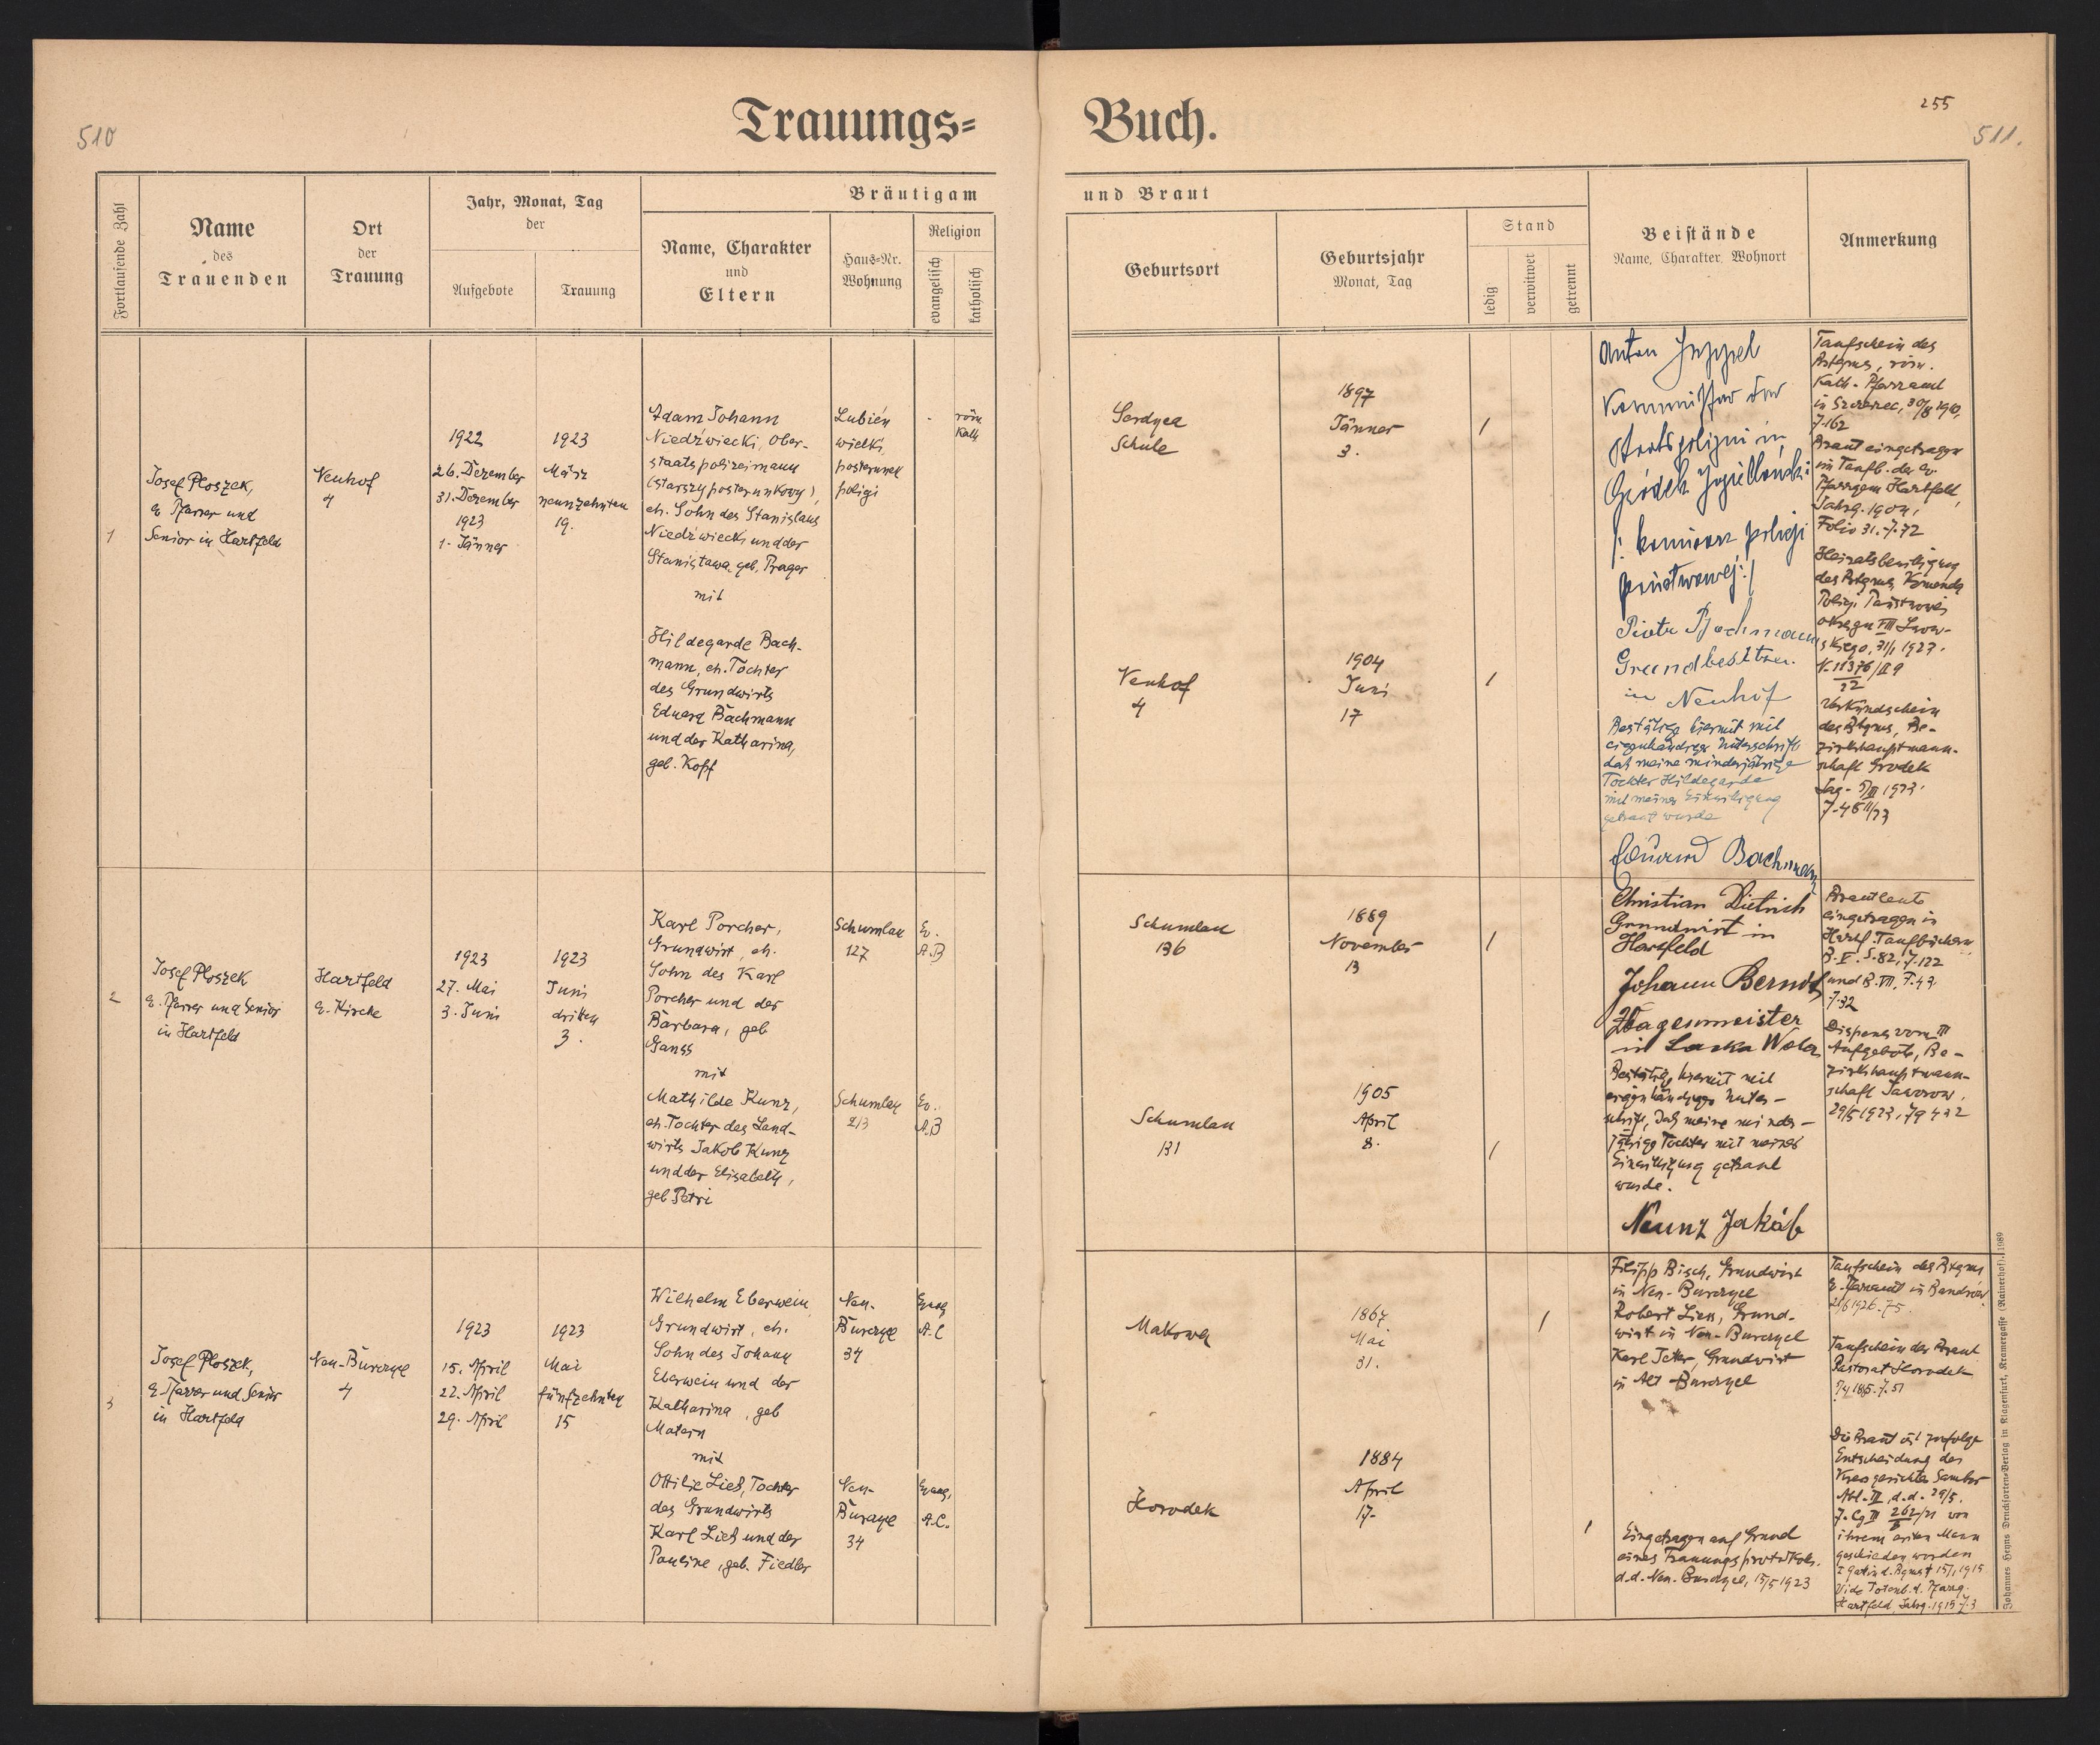 510
Trauungs=
Buch.
255
511.
Fortlaufende Zahl
Name
des
Trauenden
Ort
der
Trauung
Jahr, Monat, Tag
der
Aufgebote
Trauung
Bräutigam
Name, Charakter
und
Eltern
Haus=Nr.
Wohnung
Religion
evangelisch
katholisch
und Braut
Geburtsort
Geburtsjahr
Monat, Tag
Stand
ledig
verwitwet
getrennt
Beistände
Name, Charakter, Wohnort
Anmerkung
1
Josef Ploszek,
e. Pfarrer und
Senior in Hartfeld
Neuhof
4
1922
26. Dezember
31. Dezember
1923
1. Jänner
1923
März
neunzehnten
19.
Adam Johann
Niedźwiecki, Ober-
staatspolizeimann
(starszy posterunkowy),
eh. Sohn des Stanislaus
Niedźwiecki und der
Stanisława, geb. Prager
mit
Hildegarde Bach-
mann, eh. Tochter
des Grundwirts
Eduard Bachmann
und der Katharina,
geb. Kopf
Lubień
wielki,
posterunek
policji
röm
Kath
Serdyca
Schule
1897
Jänner
3.
/
Neuhof
4
1904
Juni
17
/
Anton
Kommissar der
Staatspolizei in
Gródek Jagielloński
/: komisarz policji
państwowej :/
Piotr Bachmann
Grundbesitzer
in Neuhof
Bestätige hiermit mit
eigenhändiger Unterschrift
daß meine minderjährige
Tochter Hildegarde
mit meiner Einwilligung
getraut wurde
Eduard Bachmann
Taufschein des
Btgms, röm.
Kath. Pfarramt
in Szczerzec,
Braut eingetragen
im Taufb. der ev.
Pfarrgem. Hartfeld,
Jahrg. 1904,
Folio 31. Z. 72
Heiratsbewilligung
des Btgms, Komenda
Policji Państwowej
okręgu VIII Lwow-
skiego, 31/1 1923.
N. 11376/II 9
22
Verkündschein
des Btgms, Be-
zirkshauptmann-
schaft Grodek
Jag.
2
Josef Ploszek
e. Pfarrer und Senior
in Hartfeld
Hartfeld
e. Kirche
1923
27. Mai
3. Juni
1923
Juni
dritten
3.
Karl Porcher,
Grundwirt, eh.
Sohn des Karl
Porcher und der
Barbara, geb
Ganss
mit
Mathilde Kunz,
eh. Tochter des Land-
wirts Jakob Kunz
und der Elisabeth,
geb Petri
Schumlau
127
Ev.
A.B
Schumlau
213
Ev.
A.B
Schumlau
136
1889
November
13
/
Schumlau
131
1905
April
8.
/
Christian Dietrich
Grundwirt in
Hartfeld
Johann Berndt
Wagenmeister
in Laska Wola
Bestätige hiermit mit
eigenhändiger Unter-
schrift, daß meine minder-
jährige Tochter mit meiner
Einwilligung getraut
wurde.
Kunz Jakób
Brautleute
eingetragen in
Hartf. Taufbüchern
B. V. S. 82, Z. 122
und B. VII, F. 47
Z. 32
Dispens vom III
Aufgebote, Be-
zirkshauptmann-
schaft Jaworow,
29/5 1923,
3
Josef Ploszek,
e. Pfarrer und Senior
in Hartfeld
Neu-Burczyce
4
1923
15. April
22. April
29. April
1923
Mai
fünfzehnten
15
Wilhelm Eberwein
Grundwirt, eh.
Sohn des Johann
Eberwein und der
Katharina, geb
Matern
mit
Ottilie Ließ, Tochter
des Grundwirts
Karl Ließ und der
Pauline, geb. Fiedler
Neu-
Burczyce
34
Evang
A.C
Neu-
Burczyce
34
Evang,
A.C.
Makowa
1867
Mai
31.
/
Horodek
1884
April
17.
/
Filipp Bisch, Grundwirt
in Neu-Burczyce
Robert Ließ, Grund-
wirt in Neu-Burczyce
Karl Jeter, Grundwirt
in Alt-Burczyce
Eingetragen auf Grund
eines Trauungsprotokolls
d.d. Neu-Burczyce, 15/5 1923
Taufschein des Btgms
e. Pfarramt in Bandrów
Taufschein der Braut
Pastorat Horodek
Die Braut ist zufolge
Entscheidung des
Kreisgerichtes Sambor
Abt. III, d.d. 29/5.
Z. Cg III 262/21 von
ihrem ersten Mann
geschieden worden
I. Gattin d. Btgms † 15/1 1915
Vide Totenb. d. Pfarrg.
Hartfeld, Jahrg. 1915 Z. 3
Johannes Heyns Drucksorten=Verlag in Klagenfurt, Kramergasse (Rainerhof). 1989